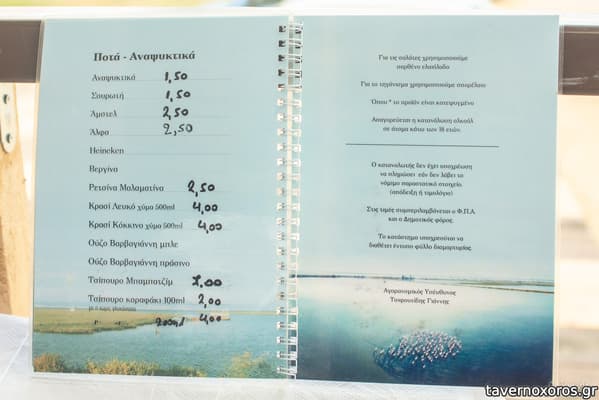 Ποτά - Αναψυκτικά
Αναψυκτικά 1,50
Σουρωτή 1,50
Άμστελ 2,50
Άλφα 2,50
Heineken
Βεργίνα
Ρετσίνα Μαλαματίνα 2,50
Κρασί Λευκό χύμα 500ml 4,00
Κρασί Κόκκινο χύμα 500ml 4,00
Ούζο Βαρβαγιάννη μπλε
Ούζο Βαρβαγιάννη πράσινο
Τσίπουρο Μπαμπατζίμ 7,00
Τσίπουρο καραφάκι 100ml 2,00
με ή χωρίς γλυκάνισο
200ml 4,00
Για τις σαλάτες χρησιμοποιούμε
παρθένο ελαιόλαδο
Για το τηγάνισμα χρησιμοποιούμε σπορέλαιο
Όπου * το προϊόν είναι κατεψυγμένο
Απαγορεύεται η κατανάλωση αλκοόλ
σε άτομα κάτω των 18 ετών.
Ο καταναλωτής δεν έχει υποχρέωση
να πληρώσει εάν δεν λάβει το
νόμιμο παραστατικό στοιχείο
(απόδειξη ή τιμολόγιο)
Στις τιμές συμπεριλαμβάνεται ο Φ.Π.Α.
και ο Δημοτικός φόρος.
Το κατάστημα υποχρεούται να
διαθέτει έντυπο φύλλο διαμαρτυρίας.
Αγορανομικός Υπεύθυνος
Τουρουνίδης Γιάννης
tavernoxoros.gr